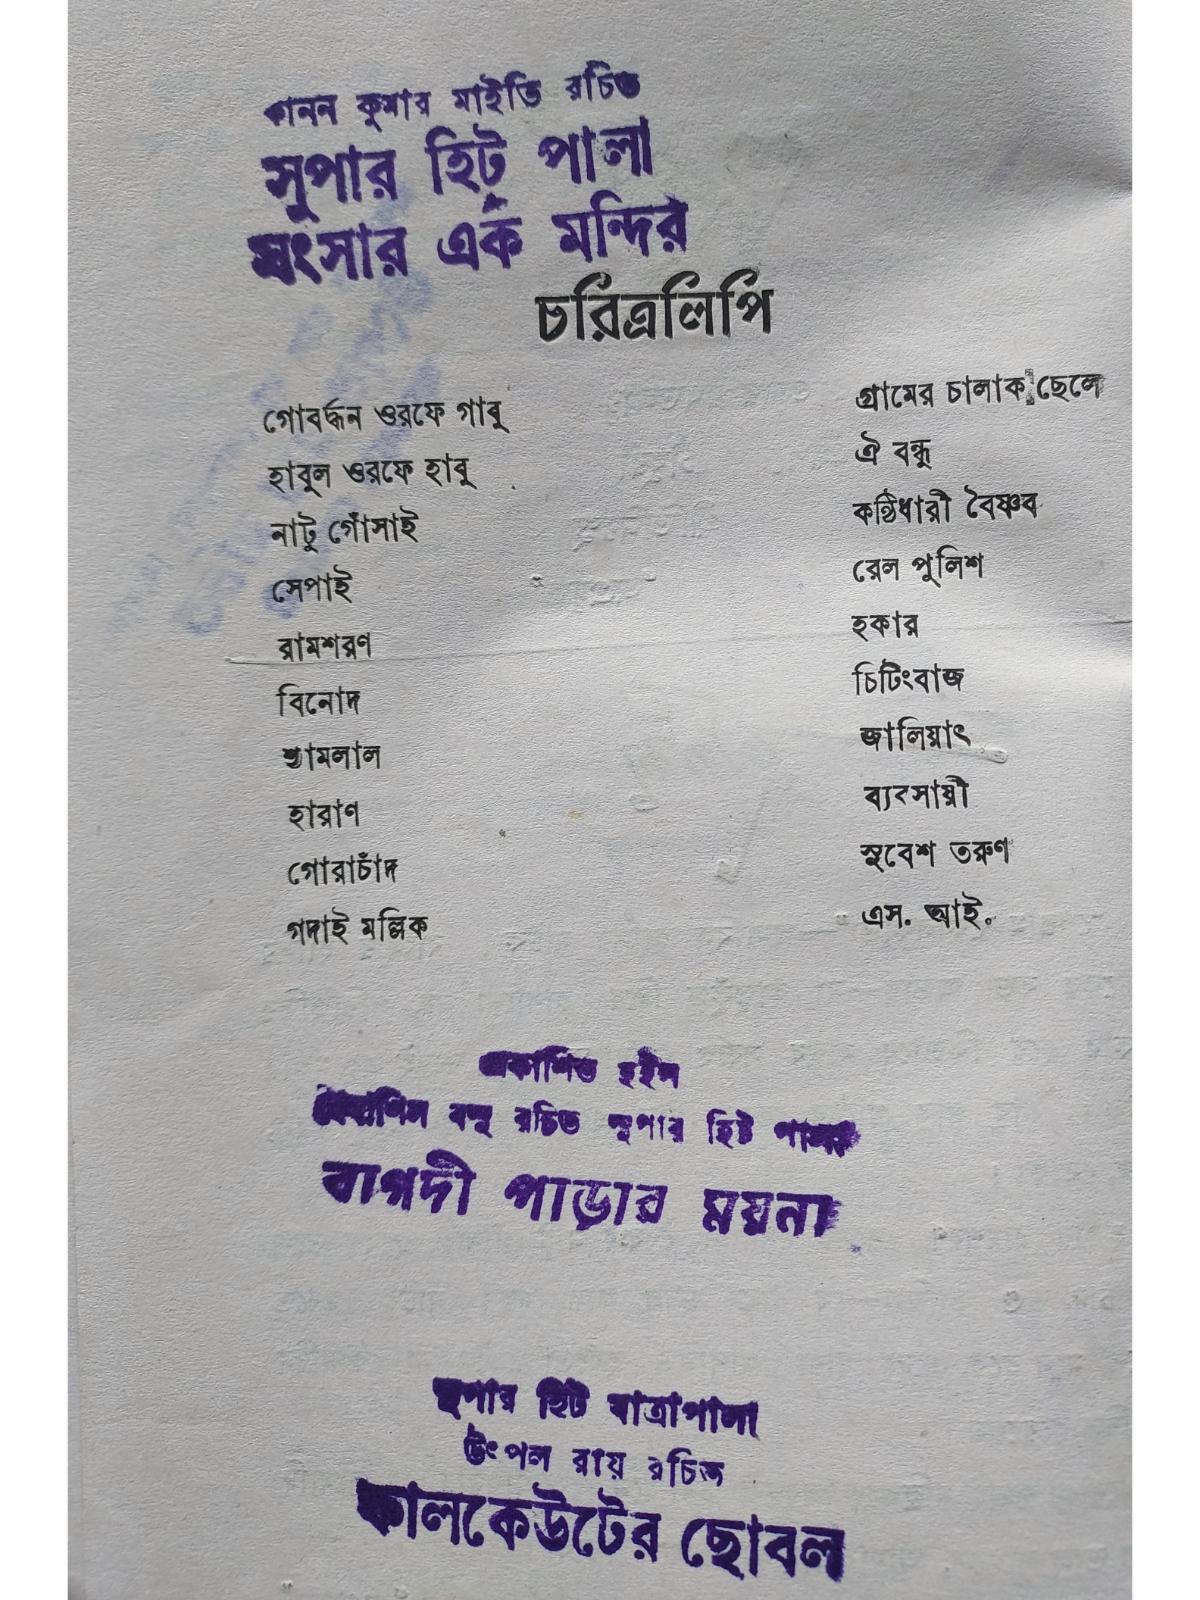 কানন কুমার মাইতি রচিত
সুপার হিট্ পালা
সংসার এক মন্দির
চরিত্রলিপি
গোবর্দ্ধন ওরফে গাবু গ্রামের চালাক ছেলে
হাবুল ওরফে হাবু ঐ বন্ধু
নাটু গোঁসাই কন্ঠিধারী বৈষ্ণব
সেপাই রেল পুলিশ
রামশরণ হকার
বিনোদ চিটিংবাজ
শ্যামলাল জালিয়াৎ
হারাণ ব্যবসায়ী
গোরাচাঁদ সুবেশ তরুণ
গদাই মল্লিক এস. আই.
প্রকাশিত হইল
বসু রচিত সুপার হিট পালা
বাগদী পাড়ার ময়না
সুপার হিট যাত্রাপালা
উৎপল রায় রচিত
কালকেউটের ছোবল